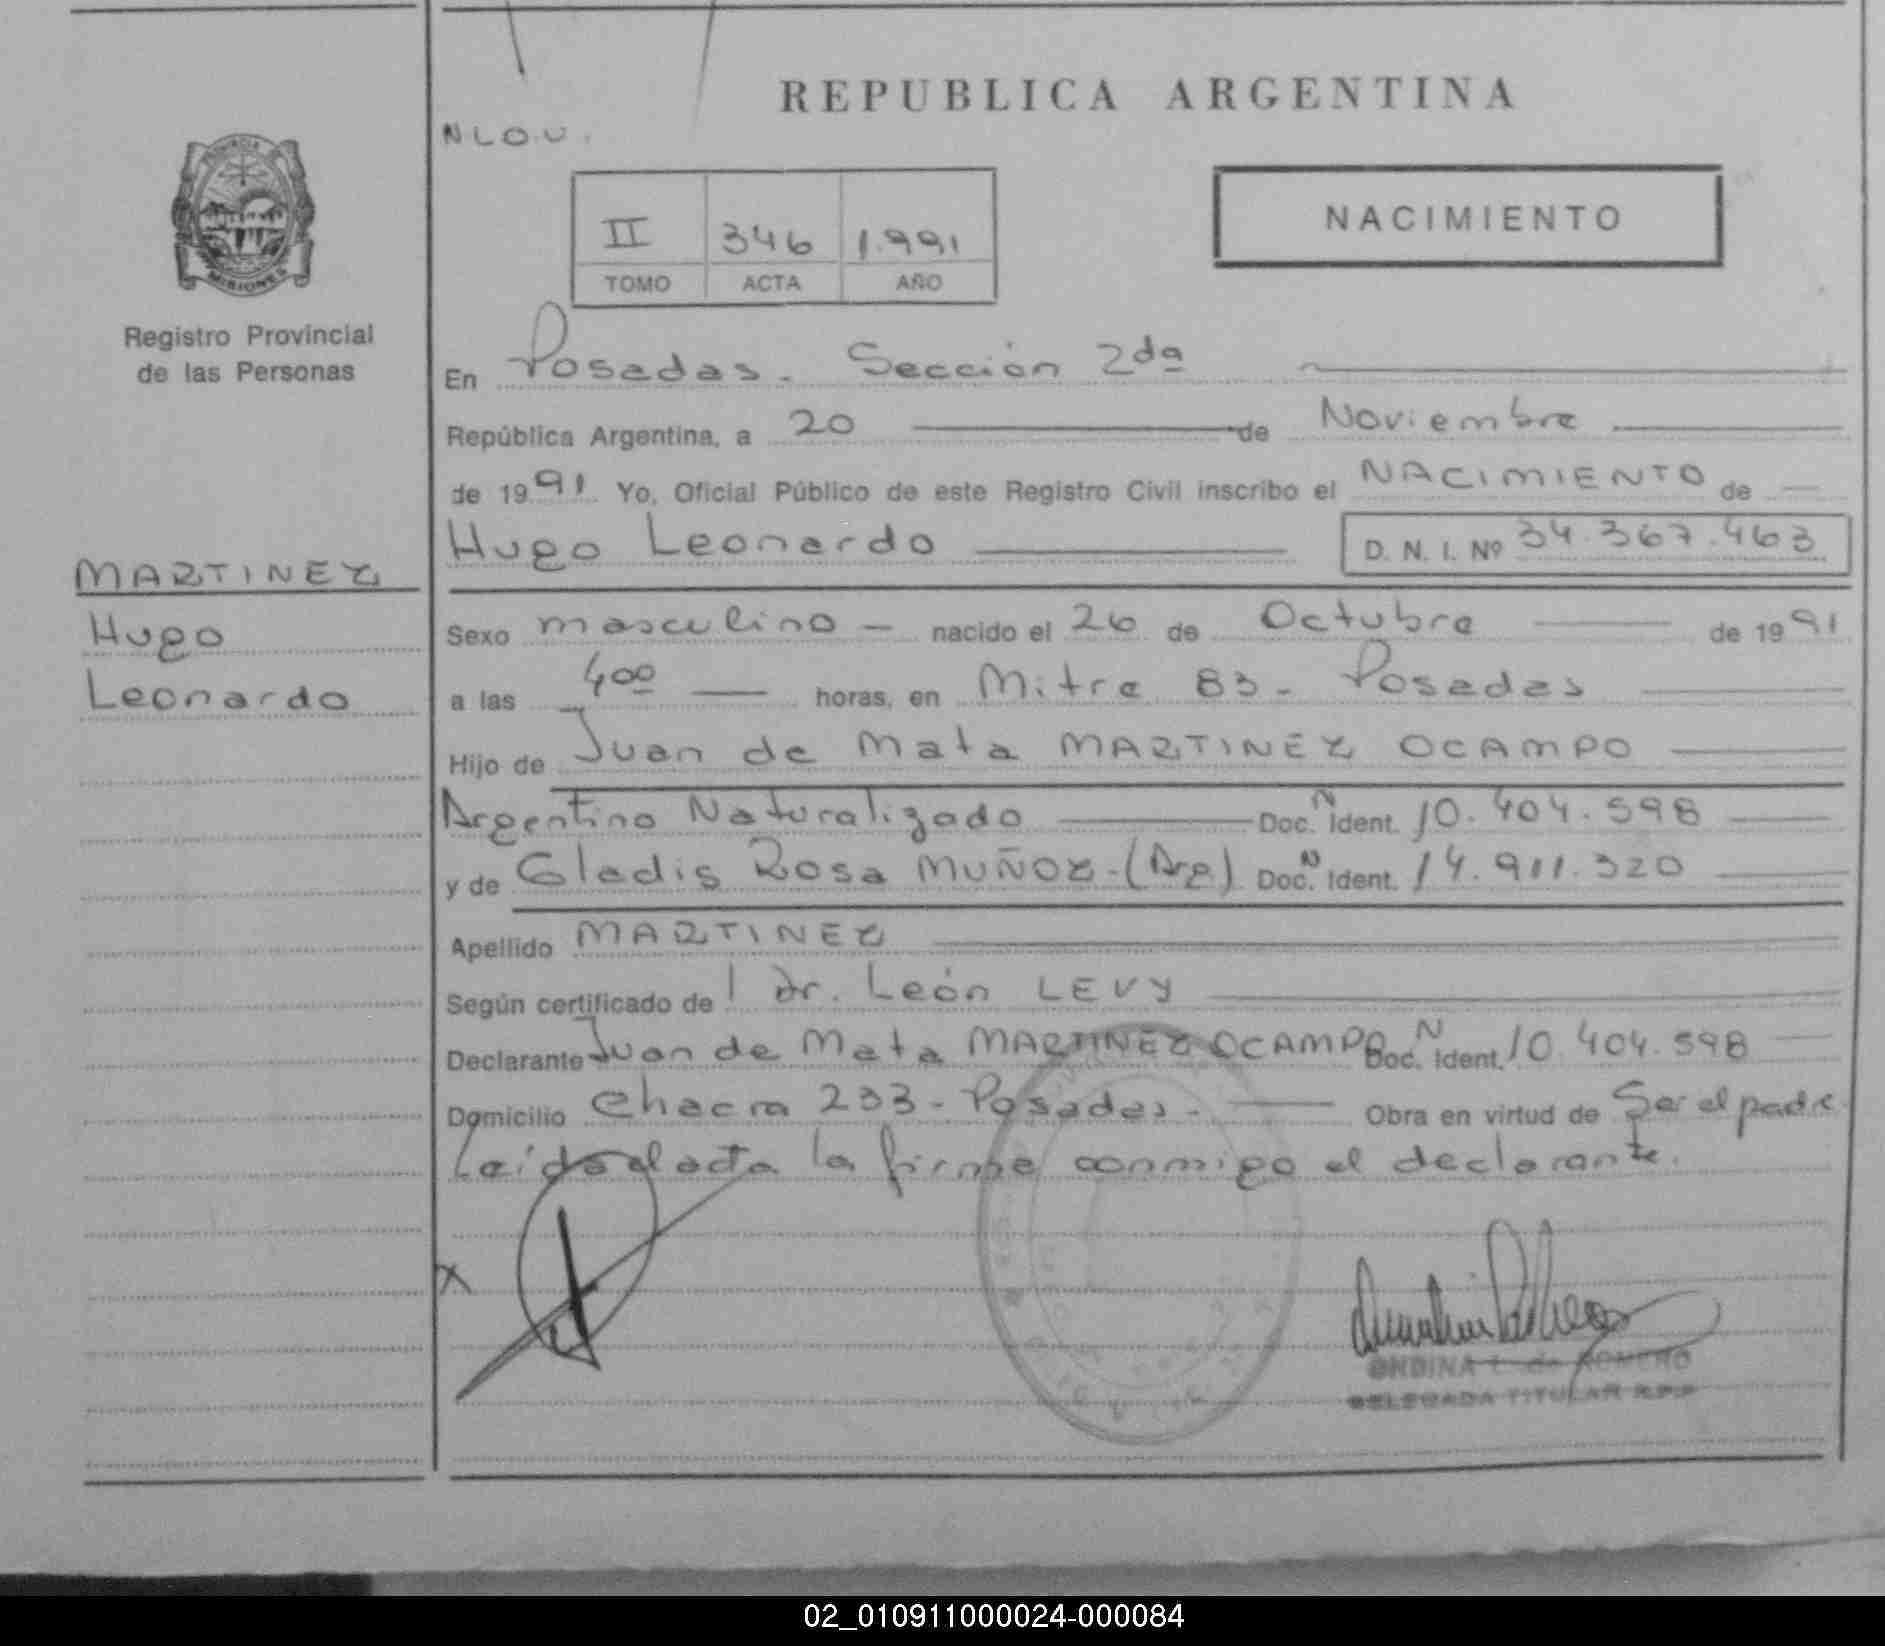 REPUBLICA ARGENTINA
N L O. U.
NACIMIENTO
II 346 1.991
TOMO ACTA AÑO
PROVINCIA
MISIONES
Registro Provincial
de las Personas
MARTINEZ
Hugo
Leonardo
En Posadas. Sección 2da
República Argentina, a 20 de Noviembre
de 1991 Yo, Oficial Público de este Registro Civil inscribo el NACIMIENTO de
Hugo Leonardo D. N. I. Nº 34.367.463
Sexo masculino nacido el 26 de Octubre de 1991
a las 4 00 horas, en Mitre 83 - Posadas
Hijo de Juan de Mata MARTINEZ OCAMPO
Argentino Naturalizado Doc. N Ident. 10.404.598
y de Gladis Rosa MUÑOZ - (Arg) Doc. N Ident. 14.911.320
Apellido MARTINEZ
Según certificado de l Dr. León LEVY
Declarante Juan de Mata MARTINEZ OCAMPO Doc. N Ident. 10.404.598
Domicilio Chacra 233 - Posadas - Obra en virtud de Ser el padre
Leída el acta la firma conmigo el declarante.
X
ONDINA L. de ROMERO
DELEGADA TITULAR R.P.P
02_010911000024-000084